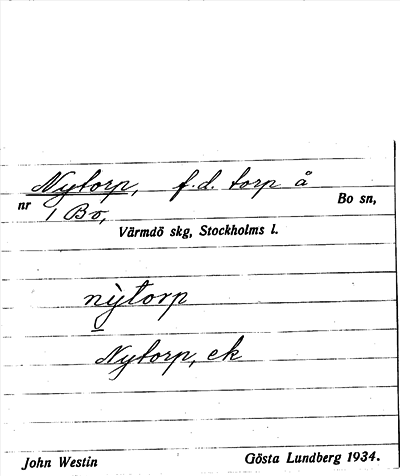 Nytorp, f.d. torp å
nr 1 Bo, Bo sn,
Värmdö skg, Stockholms l.
nỳtorp
Nytorp, ek
John Westin Gösta Lundberg 1934.